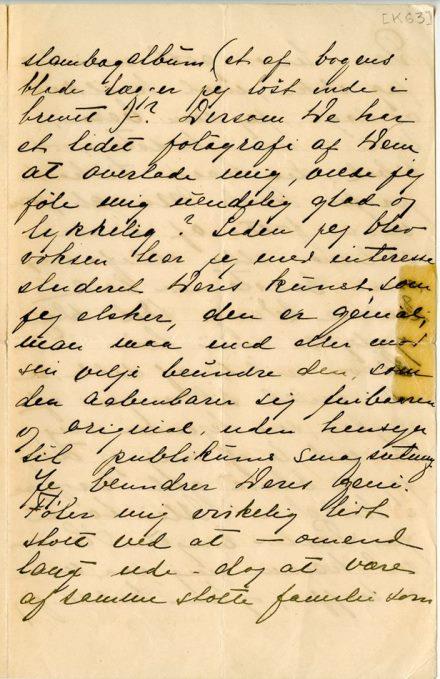 [K 63]
stambogalbum (et af bogens
blade lægger jeg løst inde i
brevet)-? Dersom De har
et lidet fotografi af Dem
at overlade mig, vilde jeg
føle mig uendelig glad og
lykkelig? Siden jeg blev
voksen har jeg med interesse
studeret Deres kunst, som
jeg elsker, den er genial,
man maa med eller mod
sin vilje beundre den, som
den aabenbarer sig
og original, uden hensyn
til publikums smagsretning.
Jeg beundrer Deres geni.
Føler mig virkelig lidt
stolt ved at – omend
langt ude – dog at være
af samme stolte familie som